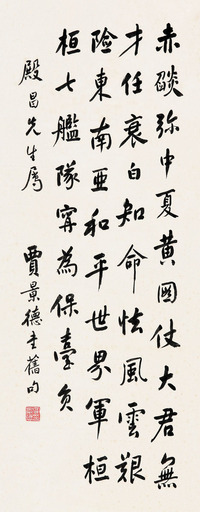 赤燄弥中夏黃圖仗大君無
才任衰白知命怯風雲艱
险東南亜和平世界軍桓
桓七艦隊寗為保臺負
殿昌先生屬
賈景德書舊句